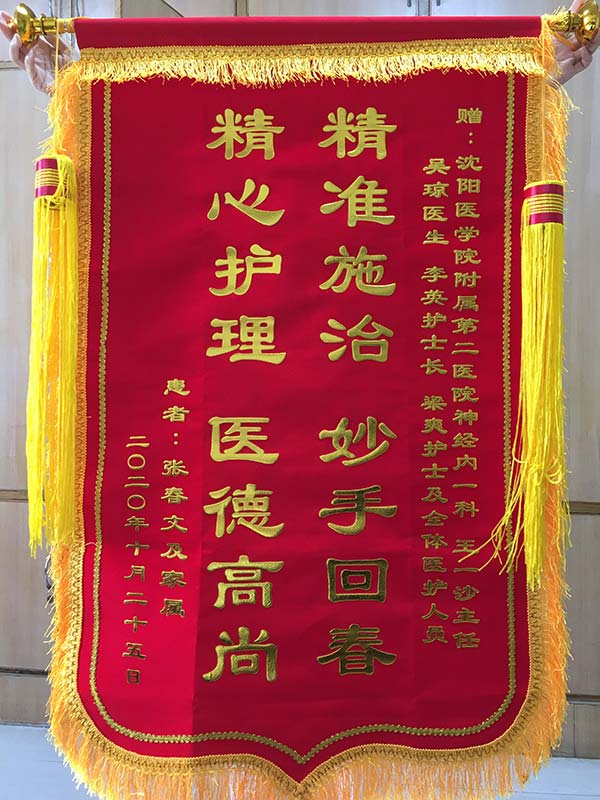 赠：沈阳医学院附属第二医院神经内一科 王一沙主任
吴琼医生 李英护士长 梁爽护士及全体医护人员
精准施治 妙手回春
精心护理 医德高尚
患者：张春文及家属
二〇二〇年十月二十五日